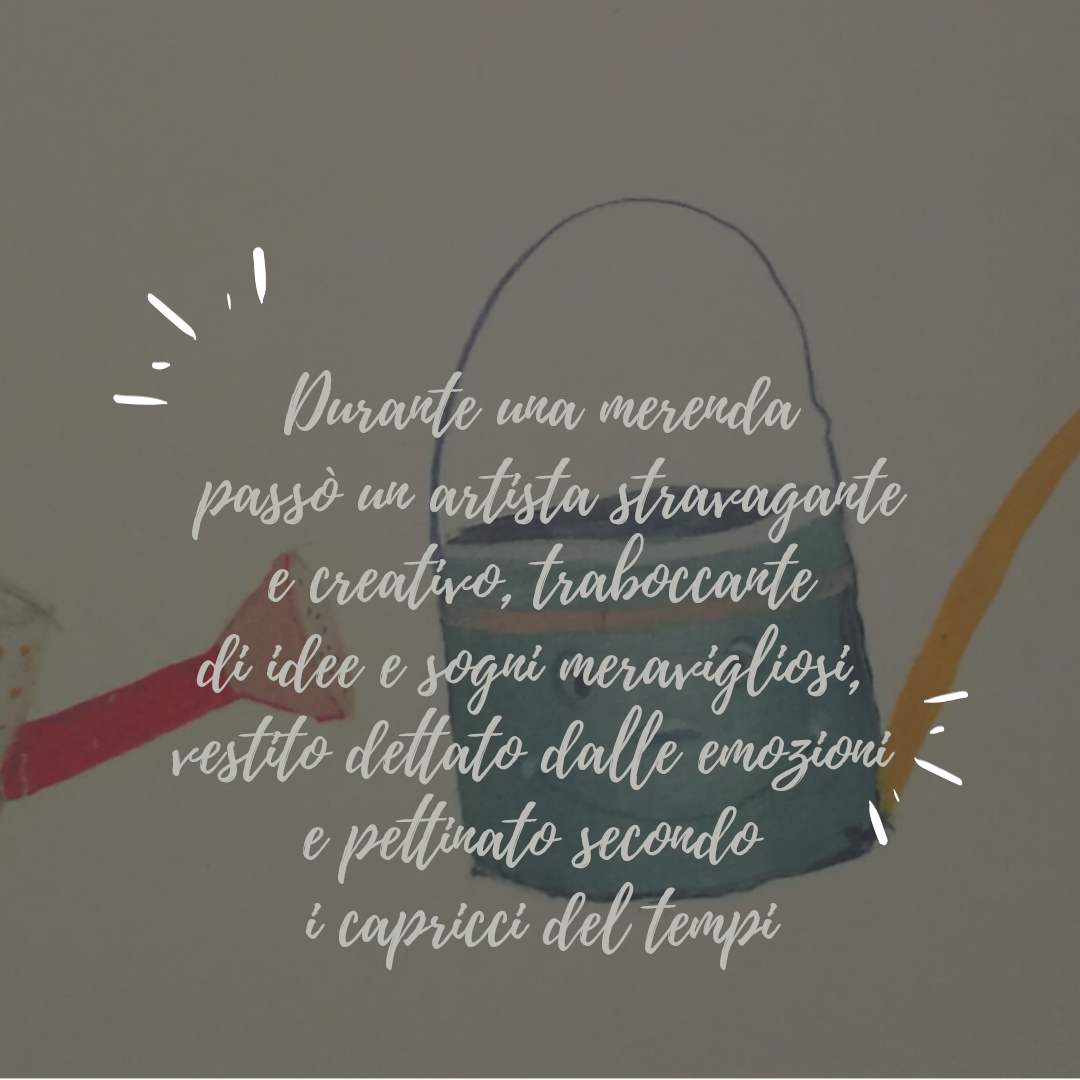 Durante una merenda
passò un artista stravagante
e creativo, traboccante
di idee e sogni meravigliosi,
vestito dettato dalle emozioni
e pettinato secondo
i capricci del tempi